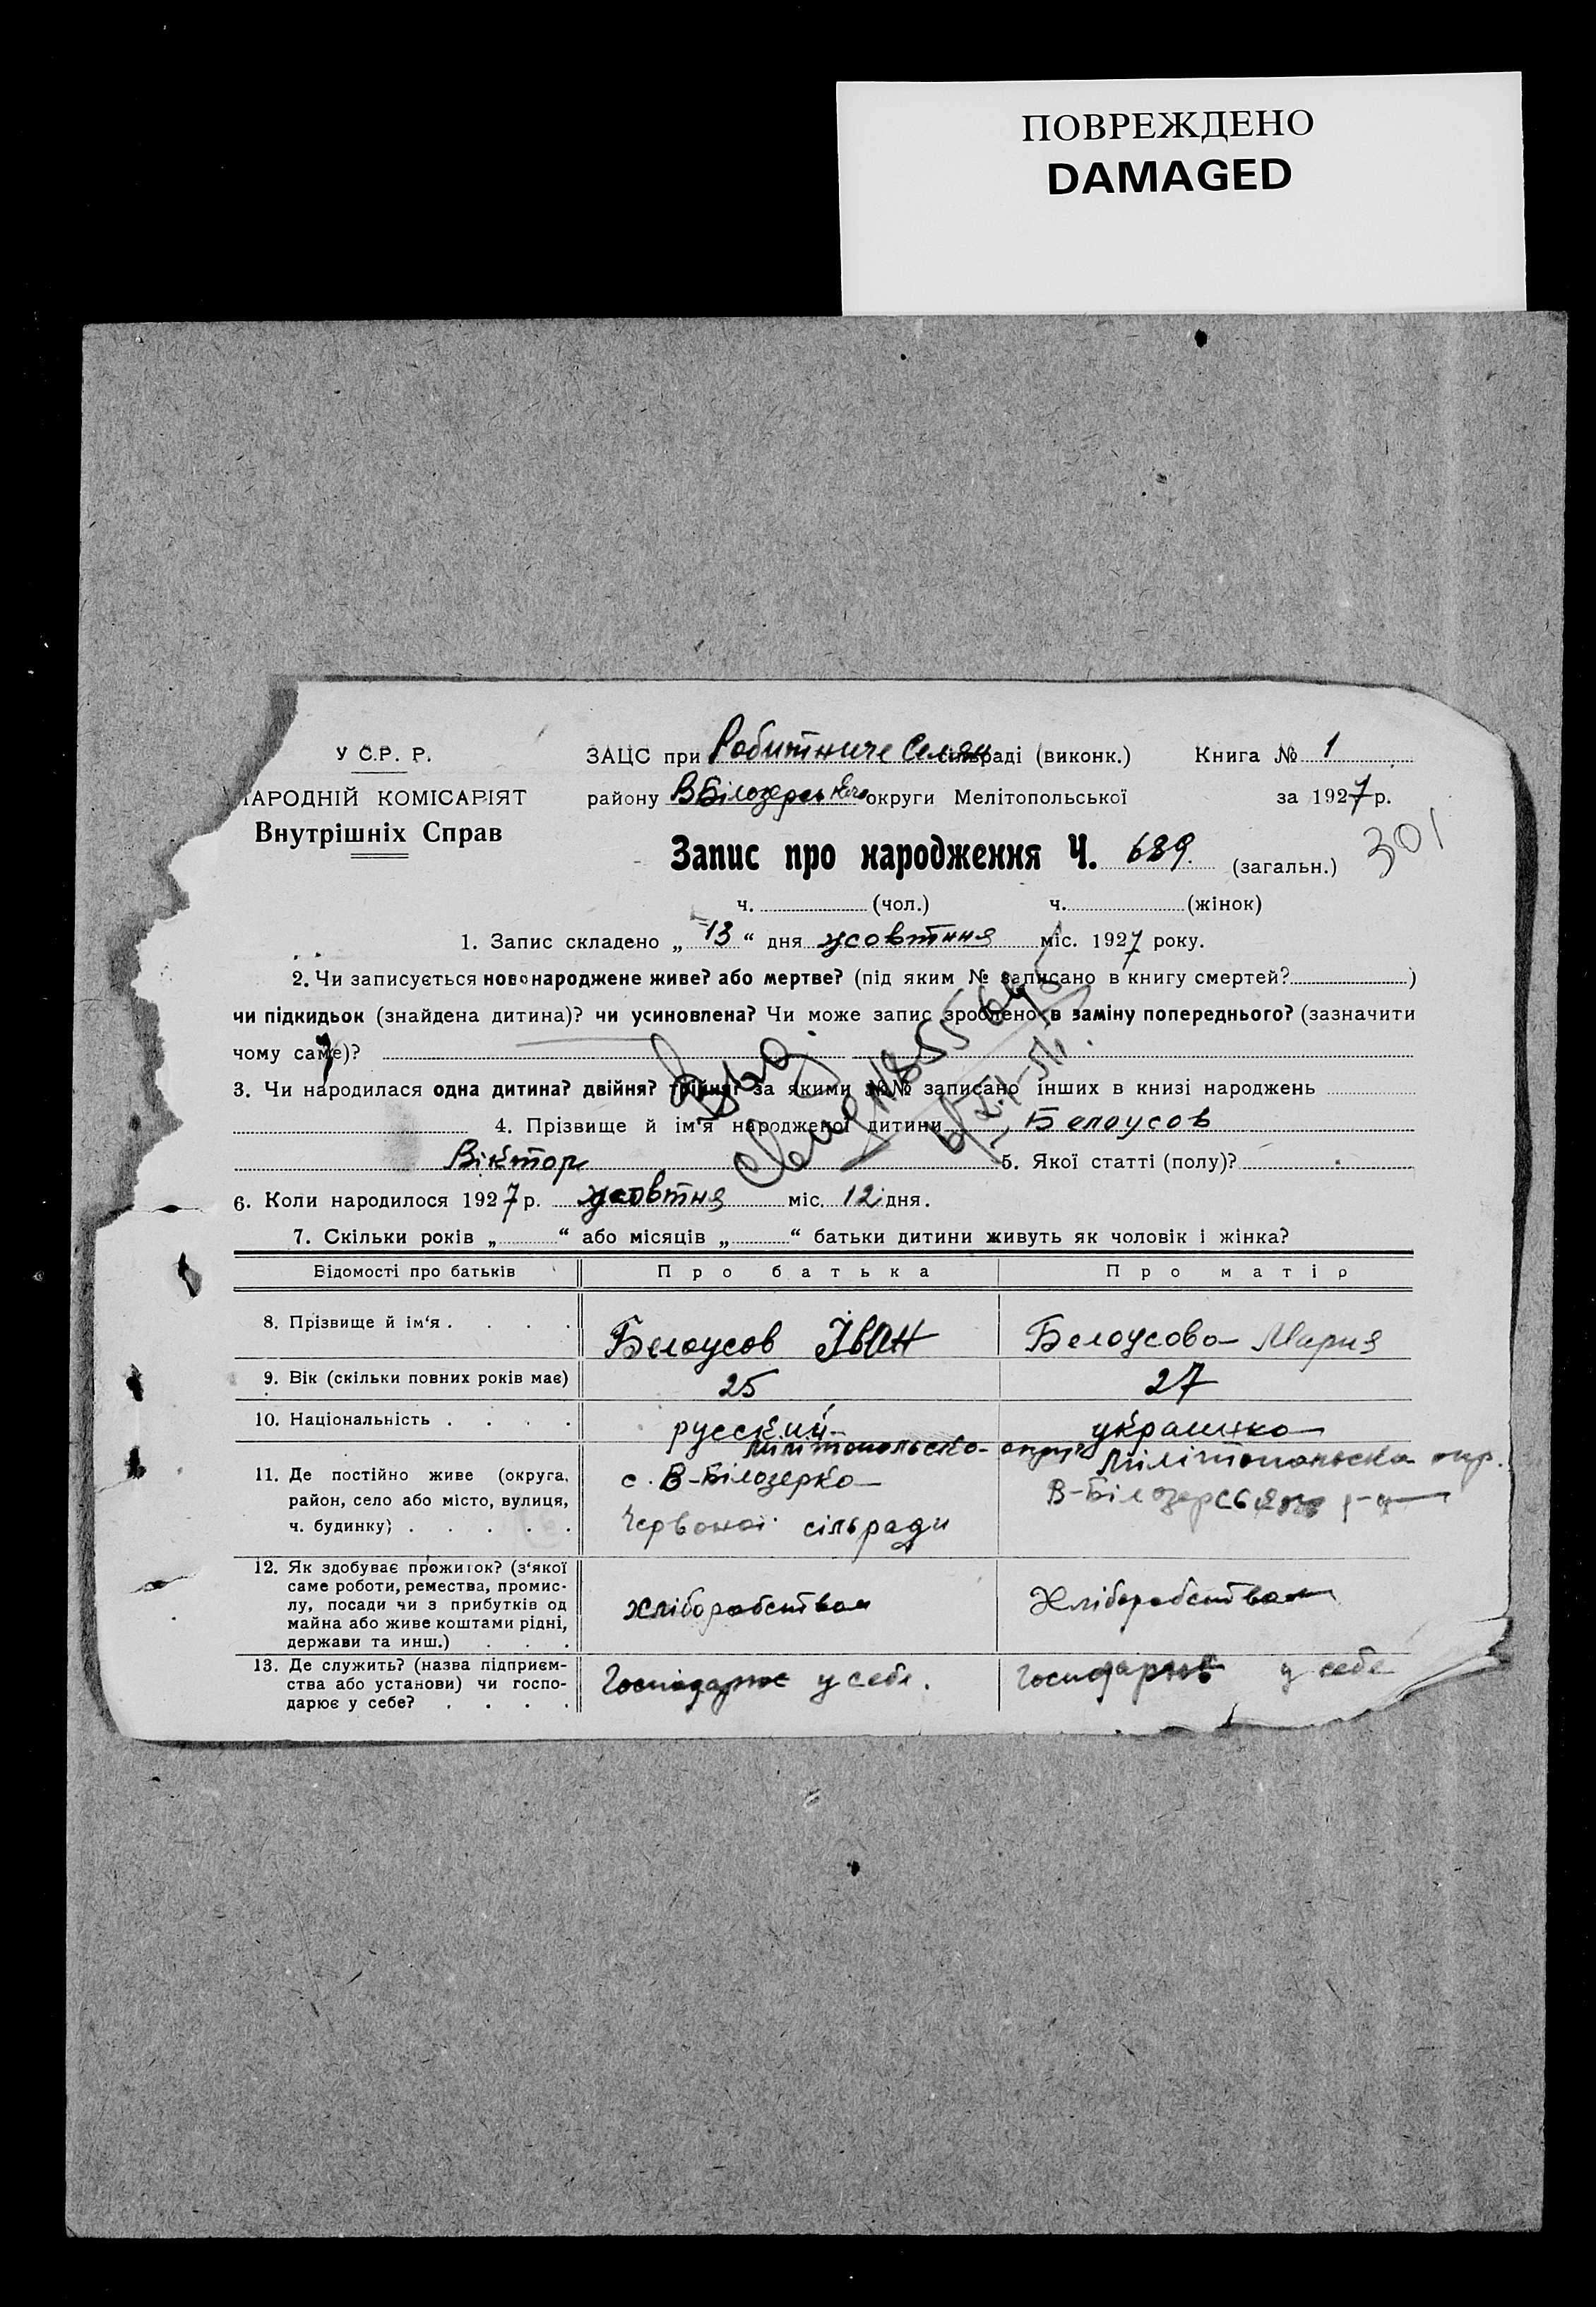 ПОВРЕЖДЕНО
DAMAGED
У С.Р. Р.
НАРОДНІЙ КОМІСАРІЯТ
Внутрішніх Справ
ЗАЦС при Робитниче Селян сільраді (виконк.) Книга № 1
району В Білозерського округи Мелітопольської за 1927 р.
Запис про народження Ч. 689. (загальн.) 301
ч. (чол.) ч. (жінок)
1. Запис складено „ 13 “ дня жовтння міс. 1927 року.
2. Чи записується новонароджене живе? або мертве? (під яким № записано в книгу смертей? )
чи підкидьок (знайдена дитина)? чи усиновлена? Чи може запис зроблено в заміну попереднього? (зазначити
чому саме)?
3. Чи народилася одна дитина? двійня? трійня? за якими №№ записано інших в книзі народжень
4. Прізвище й ім'я народженої дитини Белоусов
Віктор 5. Якої статті (полу)?
6. Коли народилося 1927 р. жовтня міс. 12 дня.
7. Скільки років „ “ або місяців „ “ батьки дитини живуть як чоловік і жінка?
Відомості про батьків Про батька Про матір
8. Прізвище й ім'я . . . . Белоусов Іван Белоусова Мария
9. Вік (скільки повних років має) 25 27
10. Національність . . . . русский украинка
11. Де постійно живе (округа, район, село або місто, вулиця, ч. будинку) . . . . .
Мілітопольска округа
с. В-Білозерка
Червоної сільради
Мілітопольска окр.
В-Білозерськ р-н
12. Як здобуває прожиток? (з'якої саме роботи, ремества, промислу, посади чи з прибутків од майна або живе коштами рідні, держави та инш.) . . .
хліборобством Хліборобством
13. Де служить? (назва підприємства або установи) чи господарює у себе? . . . .
Господарює у себе. Господарює у себе